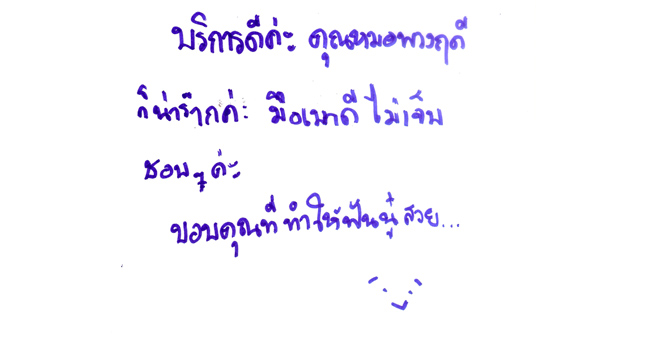 บริการดีค่ะ คุณหมอพวงฤดี
ก็น่ารักค่ะ มือเบาดี ไม่เจ็บ
ชอบๆ ค่ะ
ขอบคุณที่ทำให้ฟันนู๋สวย...